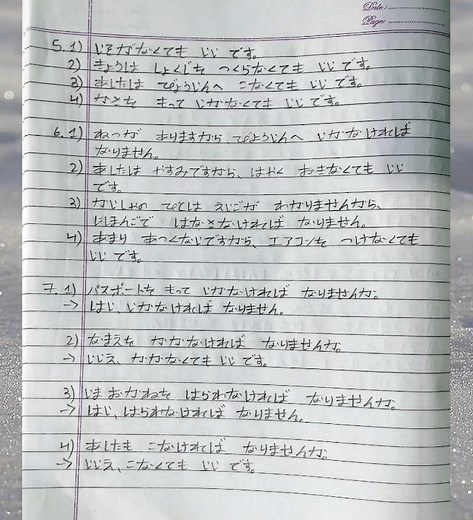 Date:
Page:
5. 1) いそがなくても いい です。
2) きょうは しょくじを つくらなくても いい です。
3) あしたは びょういんへ こなくても いい です。
4) かさを もって いかなくても いい です。
6. 1) ねつが ありますから、びょういんへ いかなければ
なりません。
2) あしたは やすみですから、はやく おきなくても いい
です。
3) かいしゃの ひとは えいごが わかりませんから、
にほんごで はなさなければ なりません。
4) あまり あつくないですから、エアコンを つけなくても
いい です。
7. 1) パスポートを もって いかなければ なりませんか。
→ はい、いかなければ なりません。
2) なまえを かかなければ なりませんか。
→ いいえ、かかなくても いい です。
3) いま おかねを はらわなければ なりませんか。
→ はい、はらわなければ なりません。
4) あしたも こなければ なりませんか。
→ いいえ、こなくても いい です。